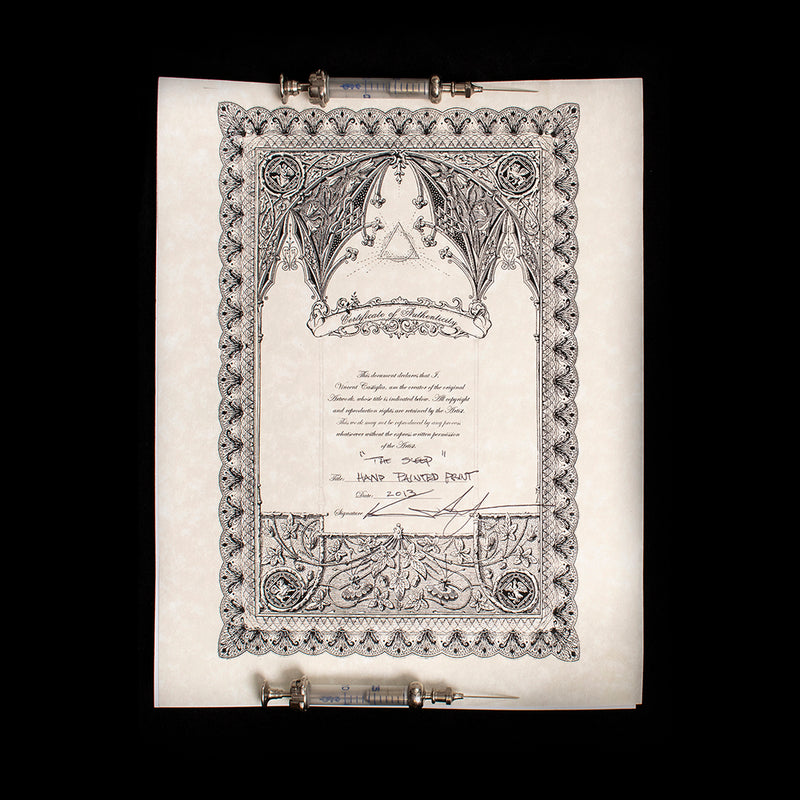 Certificate of Authenticity
This document declares that I,
Vincent Castiglia, am the creator of the original
Artwork, whose title is indicated below. All copyright
and reproduction rights are retained by the Artist.
This work may not be reproduced by any process
whatsoever without the express written permission
of the Artist.
"THE SLEEP"
Title: HAND PAINTED PRINT
Date: 2013
Signature